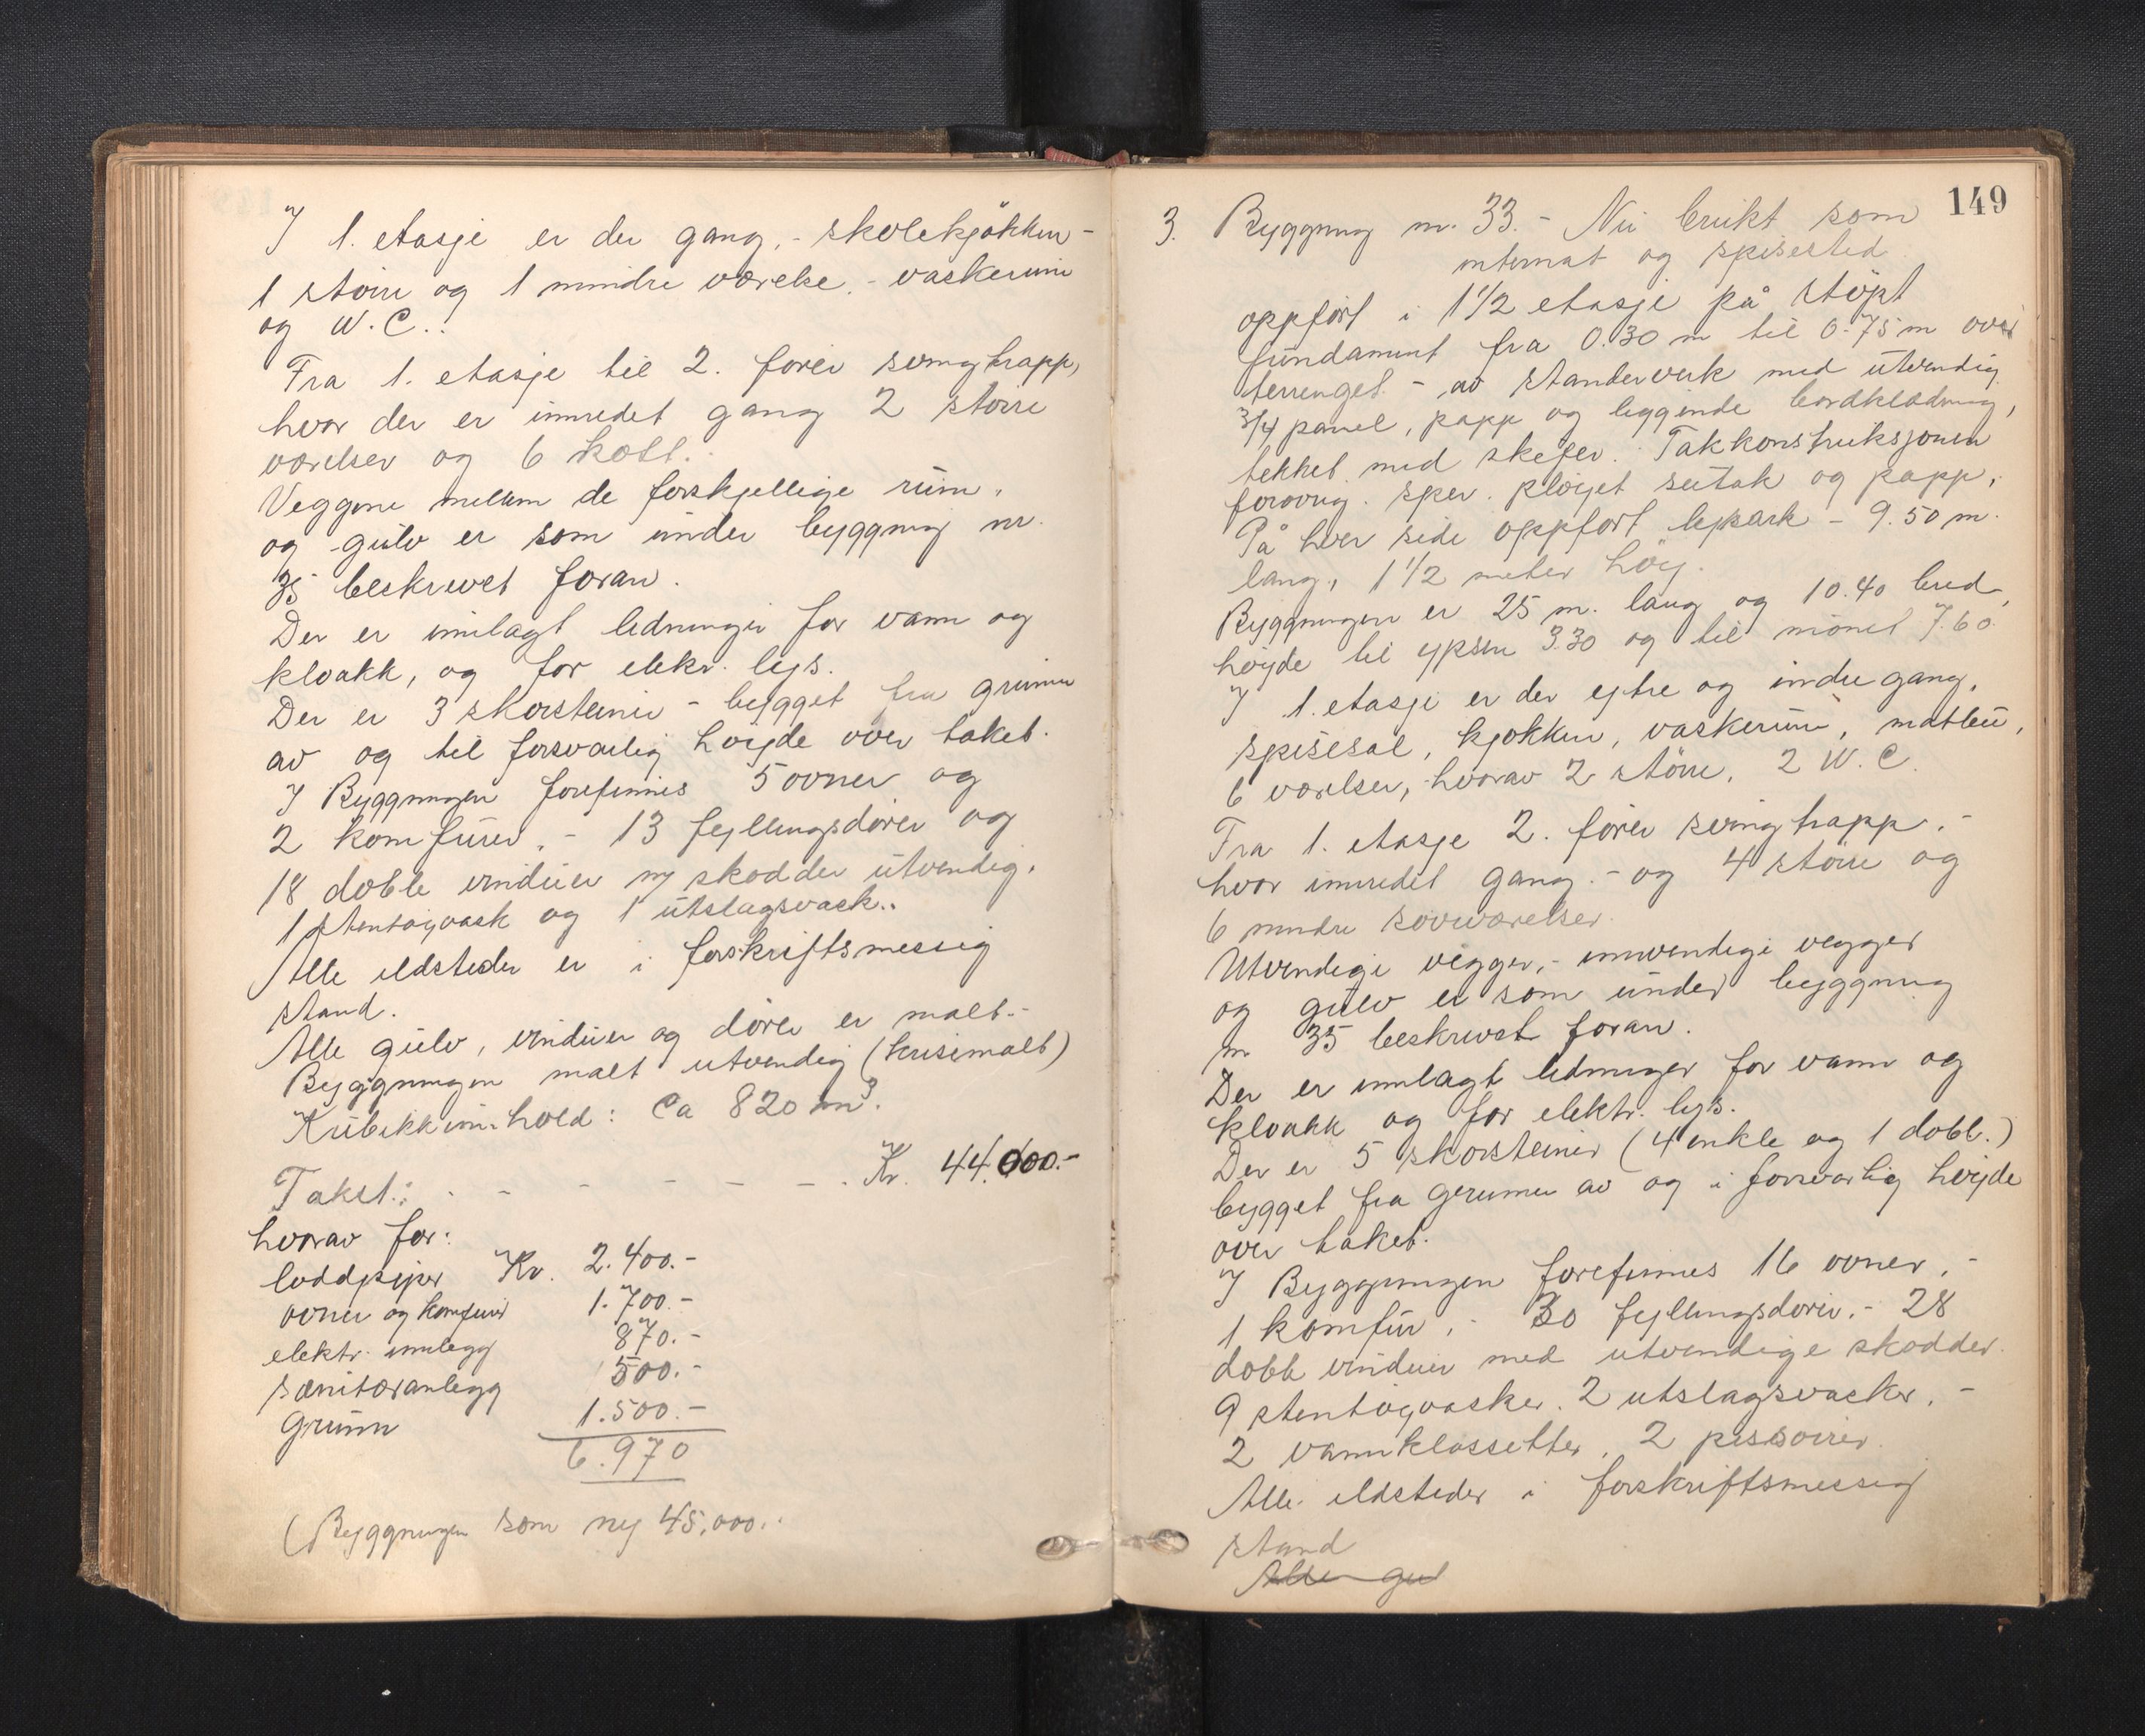 I 1. etasje er der gang, - skolekjökken -
1 större og 1 mindre værelse, - vaskerum
og W.C..
Fra 1. etasje til 2. förer svingtrapp,
hvor der er innredet gang 2 större
værelser og 6 kott.
Veggene mellem de forskjellige rum,
og gulv er som under byggning nr.
35 beskrevet foran.
Der er innlagt ledninger for vann og
kloakk, og for elekr. lys.
Der er 3 skorsteiner - bygget fra grunnen
av og til forsvarlig höyde over taket.
I Byggningen forefinnes 5 ovner og
2 komfurer, - 13 fyllingsdörer og
18 doble vinduer m/ skodder utvendig.
1 stentöyvask og 1 utslagsvask..
Alle ildsteder er i forskriftsmessig
stand.
Alle gulv, vinduer og dörer er malt.-
Byggningen malt utvendig (krisemalt)
Kubikkinnhold: Ca 820 m³.
Takst: . - - - - - - . Kr. 44.000.-
hvorav for:
loddpiper Kr. 2.400.-
ovner og komfurer 1.700.-
elektr. innlegg 870.-
sanitæranlegg 500.-
Grunn 1.500.-
6.970
(Byggningen som ny 45,000..
149
3. Byggning nr. 33. - Nu brukt som
internat og spisested
oppfört i 1 1/2 etasje på stöpt
fundament fra 0.30 m til 0.75 m over
terrenget - av standerverk med utvendig
3/4 panel, papp og liggende bordklædning,
tekket med skifer. Takkonstruksjonen
forövrig. sper. plöyet sutak og papp.
På hver side oppfört lepark - 9.50 m.
lang, 1 1/2 meter höy.
Byggningen er 25 m. lang og 10.40 bred,
höyde til ypsen 3.30 og til mönet 7.60.
I 1. etasje er der ytre og indre gang,
spisesal, kjökken, vaskerum, matbu,
6 værelser, hvorav 2 större, 2 W.C.
Fra 1. etasje 2. förer svingtrapp.-
hvor innredet gang.- og 4 större og
6 mindre soveværelser.
Utvendige vegger, - innvendige vegger
og gulv er som under byggning
nr 35 beskrevet foran.
Der er innlagt ledninger for vann og
kloakk og for elektr. lys.
Der er 5 skorsteiner (4 enkle og 1 dobb.)
bygget fra grunnen av og i forsvarlig höyde
over taket.
I Byggningen forefinnes 16 ovner, -
1 komfur, - 30 fyllingsdörer. - 28
doble vinduer med utvendige skodder.
9 stentöyvasker. 2 utslagsvasker. -
2 vannklossetter, 2 pissoirer.
Alle ildsteder i forskriftsmessig
stand
Alle gul